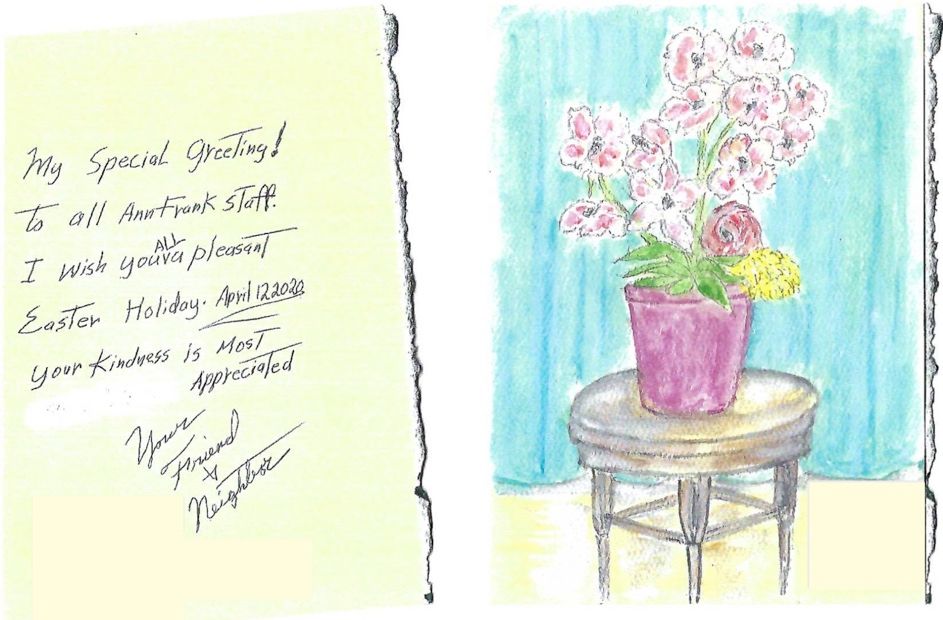 My Special Greeting!
To all AnnFrank staff.
I wish you ALL a pleasant
Easter Holiday. April 12 2020
your kindness is Most
Appreciated
Your
Friend
&
Neighbor